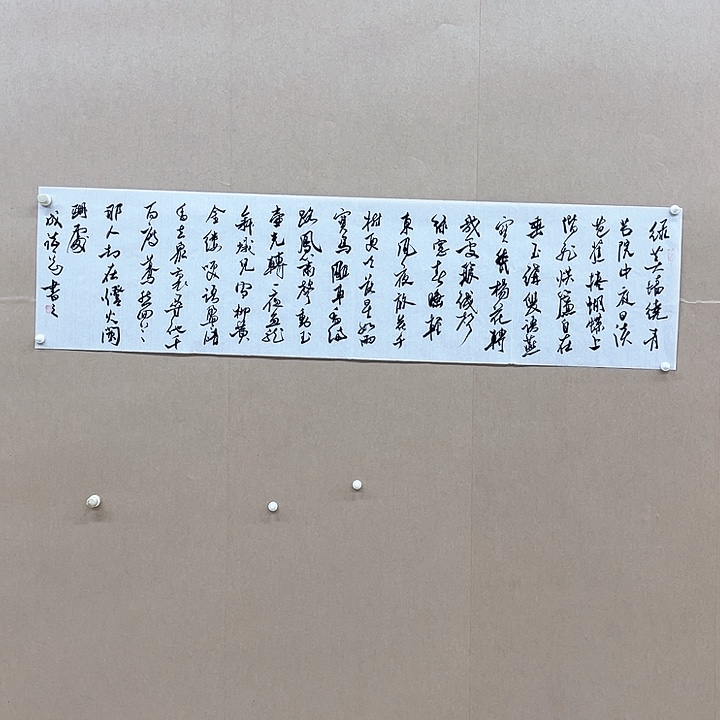 綠芜墙繞青
苔院中庭日淡
芭蕉捲蝴蝶上
階飛烘簾自在
垂玉鉤雙語燕
寶甃楊花轉
幾處簸錢聲
綠窗春睡輕
東風夜放花千
樹更吹落星如雨
寶馬雕車香滿
路鳳簫聲動玉
壺光轉一夜魚龍
舞蛾兒雪柳黃
金縷笑語盈暗
香去眾裏尋他千
百度驀然回
那人卻在燈火闌
珊處
書